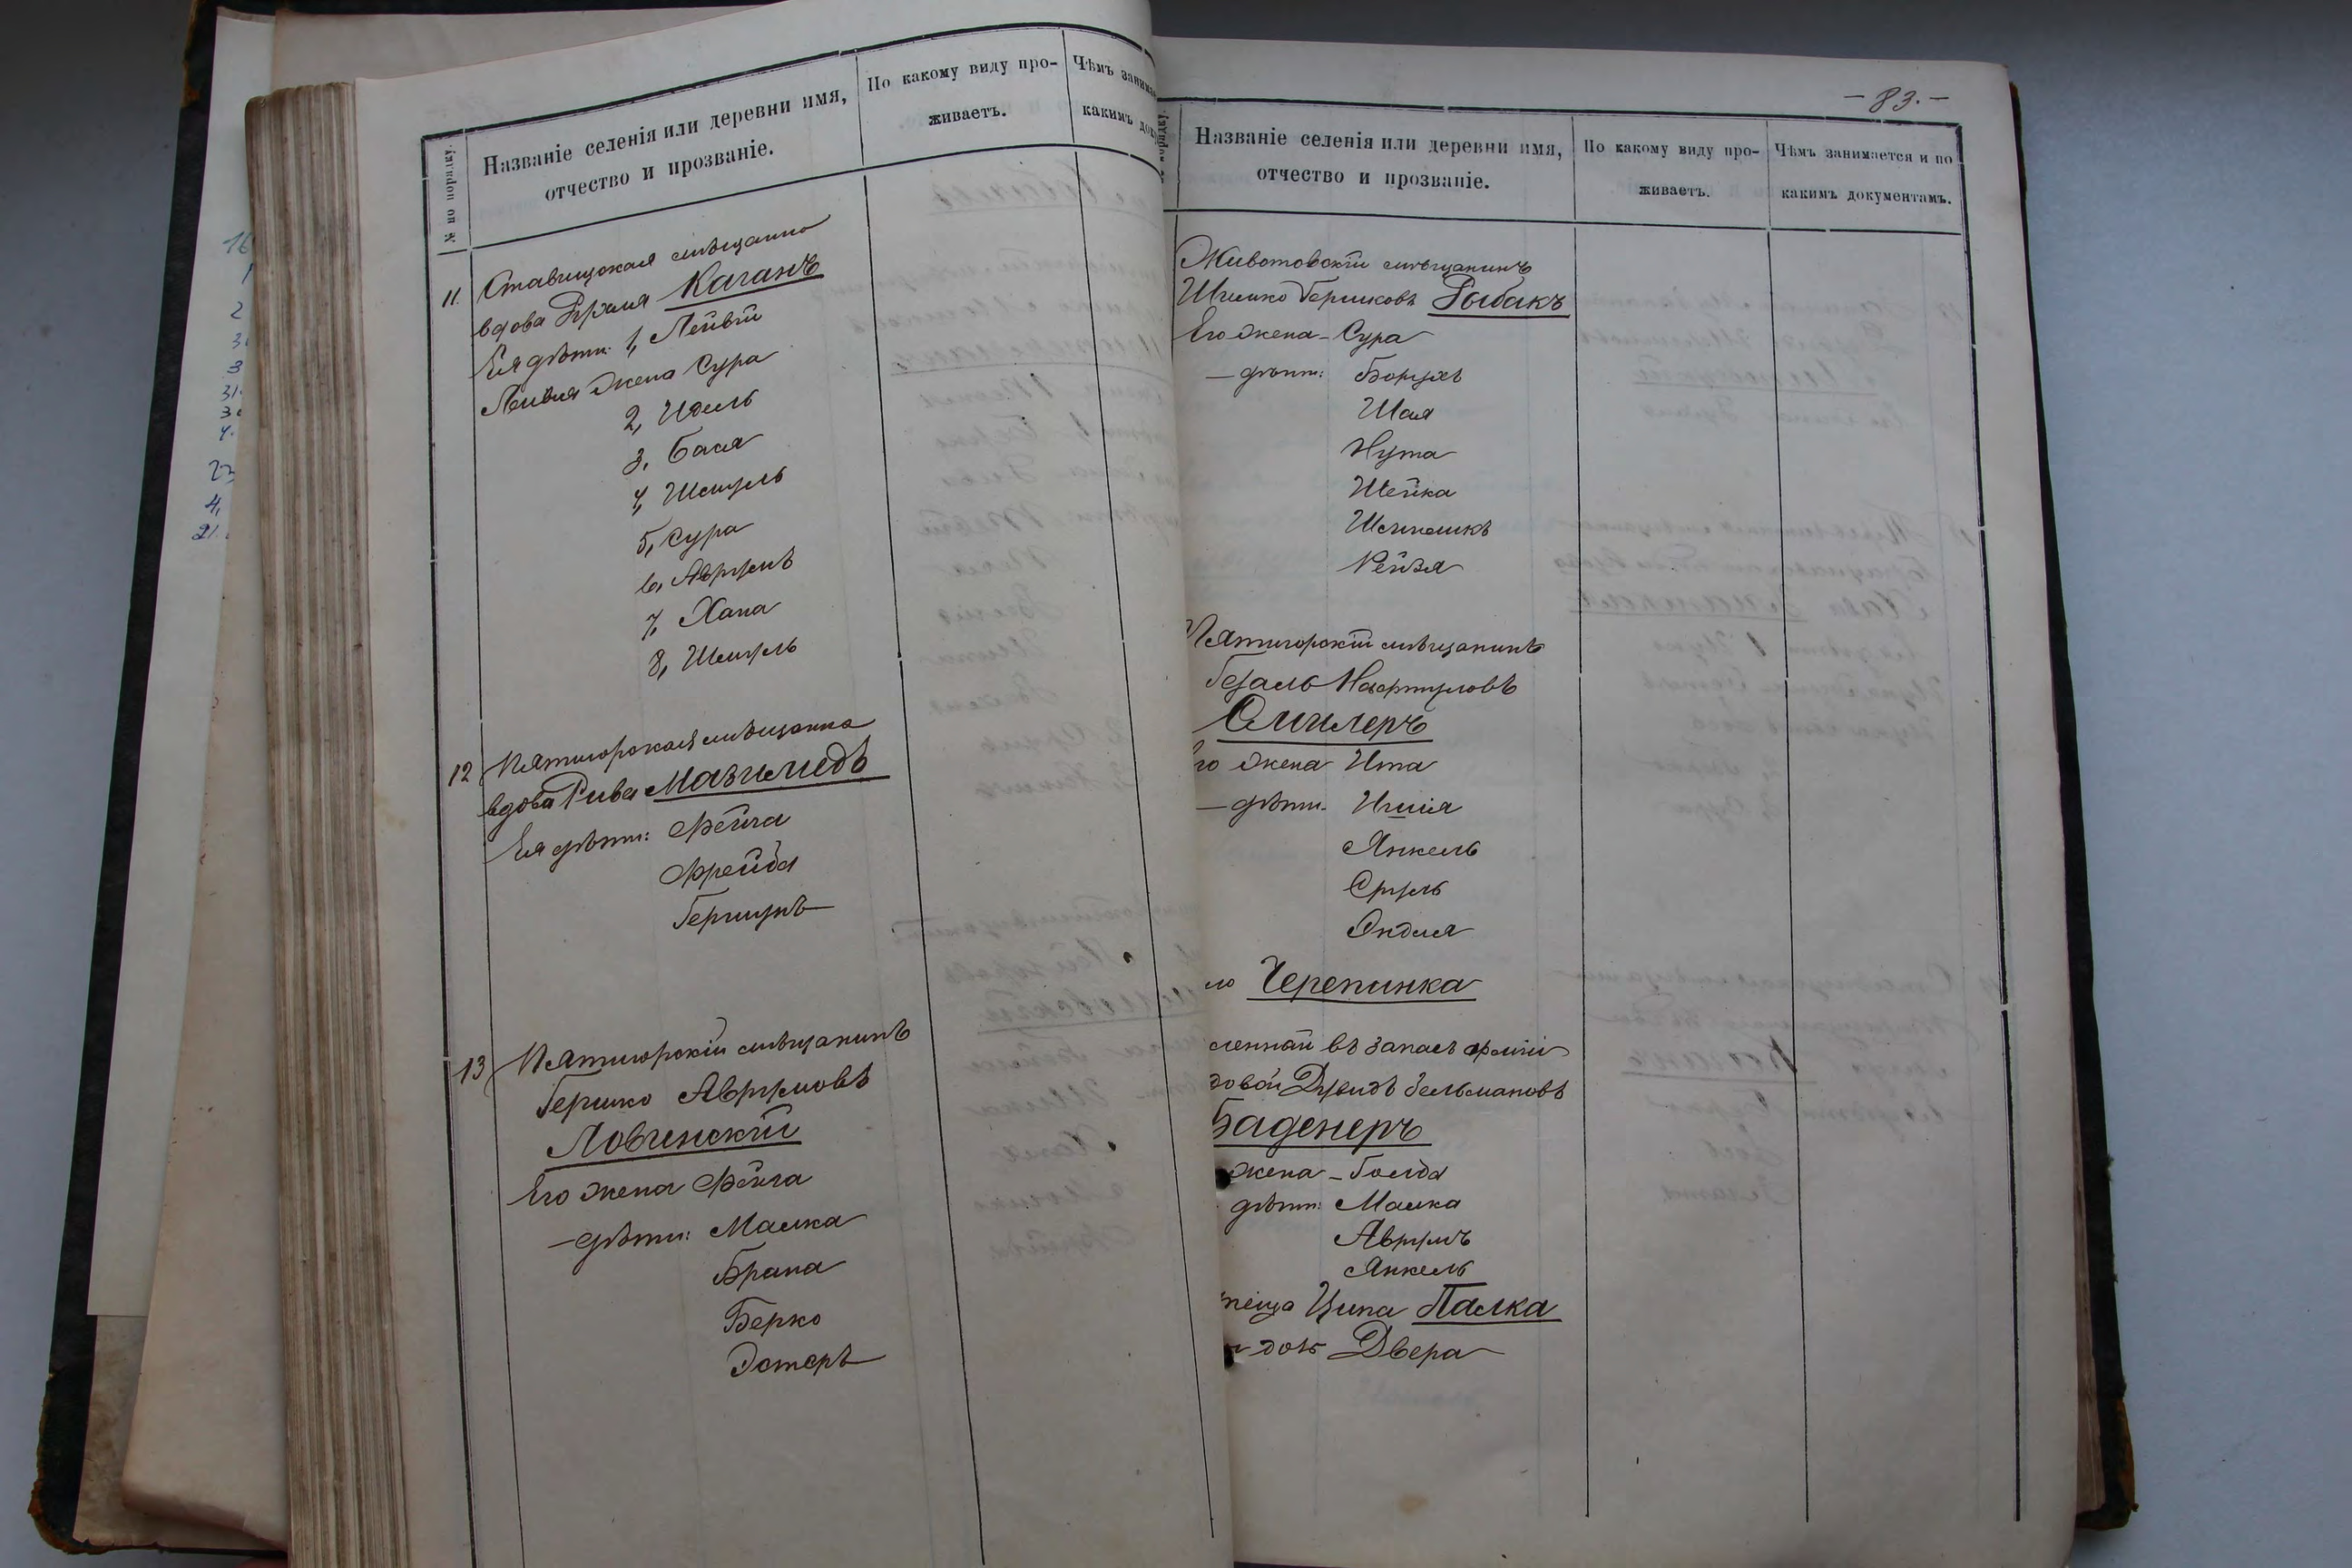 № по порядку.
Названіе селенія или деревни имя,
отчество и прозваніе.
По какому виду про-
живаетъ.
Чѣмъ
какимъ
11 Ставищская мѣщанка
вдова Каганъ
Ея дѣти: 1, Лейвій
Лейвія жена Сура
2, Идель
3, Бася
4, Шмуль
5, Сура
6, Аврумъ
7, Хана
8, Шмуль
12 Пятигорская мѣщанка
вдова Рива Мазимедъ
Ея дѣти: Фейга
Фрейда
Гершунъ
13 Пятигорскій мѣщанинъ
Гершко Аврумовъ
Ловчинскій
Его жена Фейга
— дѣти: Малка
Брана
Берко
Эстеръ
— 83. —
Названіе селенія или деревни имя,
отчество и прозваніе.
По какому виду про-
живаетъ.
Чѣмъ занимается и по
какимъ документамъ.
Животовскій мѣщанинъ
Шмилко Гершковъ Рыбакъ
Его жена — Сура
— дѣти: Борухъ
Шая
Нута
Шейка
Рейзя
Пятигорскій мѣщанинъ
Гедаль
Смилеръ
жена Ита
— дѣти. Ицик
Янкель
Сруль
Эндля
Черепинка
въ запасъ арміи
Дувидъ Зельмановъ
Баденеръ
жена — Голда
дѣти: Малка
Аврумъ
Янкель
Ципа Палка
дочь Двера